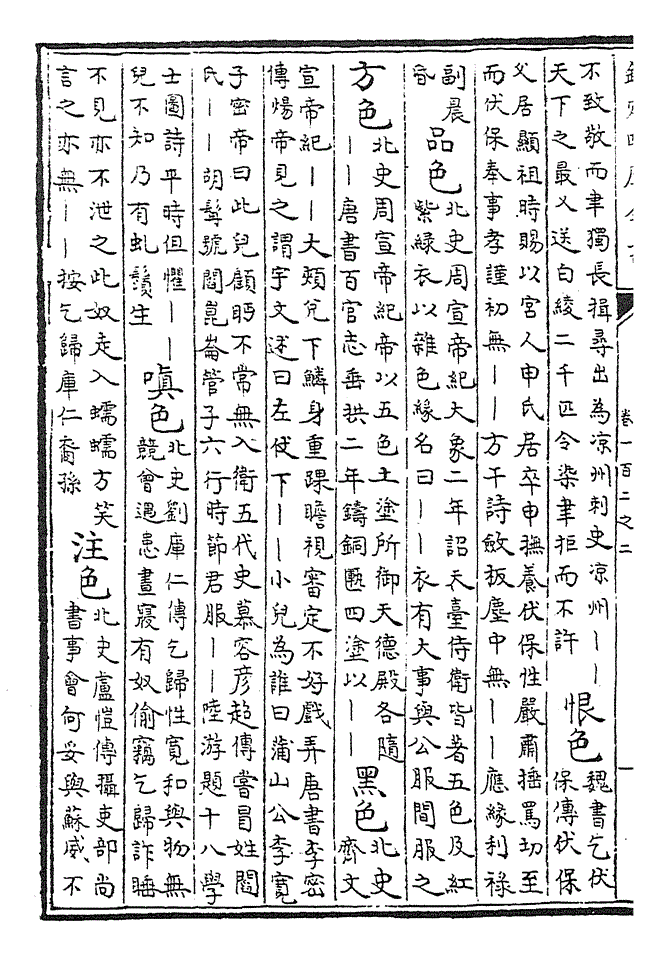 卷一百二之二
不致敬而聿獨長揖尋出為涼州刺史涼州丨丨
天下之最乂送白綾二千匹令染聿拒而不許
恨色
魏書乞伏
保傳伏保
父居顯祖時賜以宮人申氏居卒申撫養伏保性嚴肅捶罵切至
而伏保奉事孝謹初無丨丨方干詩斂扳塵中無丨丨應緣利祿
副晨
昏
品色
北史周宣帝紀大象二年詔天臺侍衛皆著五色及紅
紫綠衣以雜色緣名曰丨丨衣有大事與公服間服之
方色
北史周宣帝紀帝以五色土塗所御天德殿各隨
丨丨唐書百官志垂拱二年鑄銅匭四塗以丨丨
黑色
北史
齊文
宣帝紀丨丨大頰兌下鱗身重踝瞻視審定不好戲弄唐書李密
傳煬帝見之謂宇文述曰左仗下丨丨小兒為誰曰蒲山公李寬
子密帝曰此兒顧眄不常無入衛五代史慕容彥超傳嘗冒姓閻
氏丨丨胡髯號閻崑崙管子六行時節君服丨丨陸游題十八學
士圖詩平時但懼丨丨
兒不知乃有虬鬚生
嗔色
北史劉庫仁傳乞歸性寬和與物無
競曾遇患晝寢有奴偷竊乞歸詐睡
不見亦不泄之此奴走入蠕蠕方笑
言之亦無丨丨按乞歸庫仁裔孫
注色
北史盧愷傳攝吏部尚
書事會何妥與蘇威不